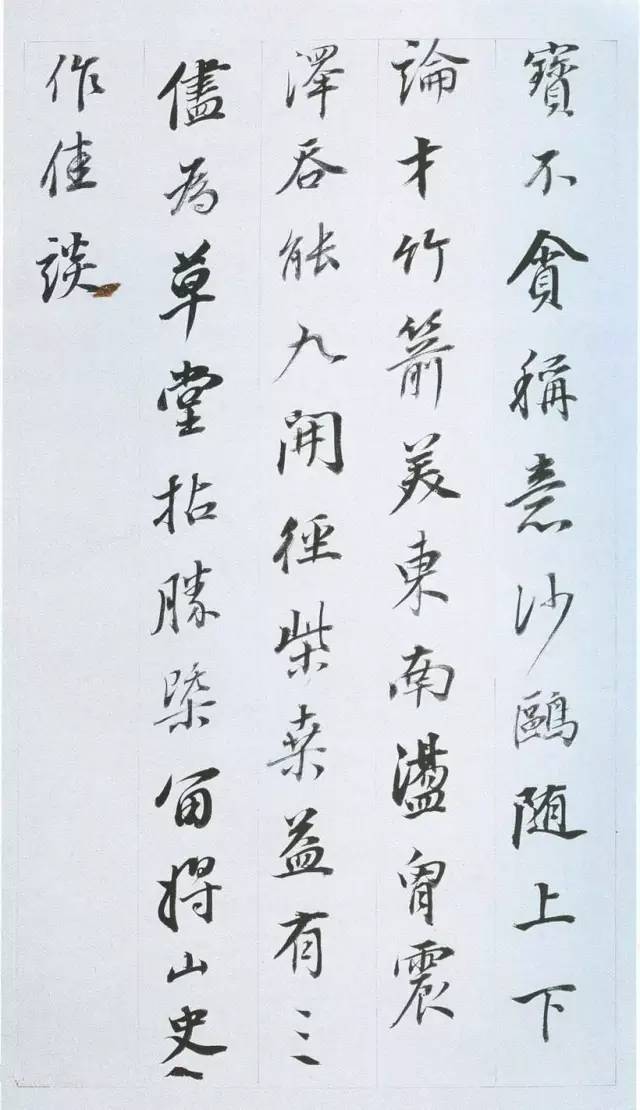 寶不貪稱意沙鷗随上下
論才竹箭美東南盪胷震
澤吞能九開徑柴桑益有三
儘為草堂拈勝槩留將山史
作佳談